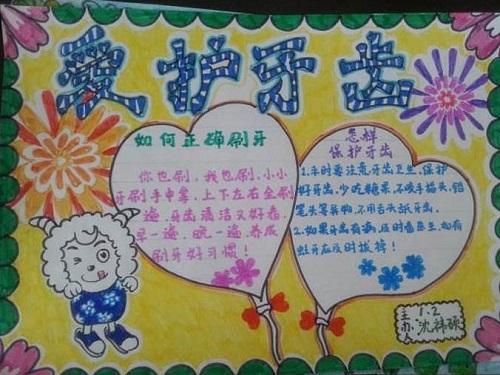 愛护牙齿
如何正确刷牙
你也刷,我也刷,小小
牙刷手中拿,上下左右全刷
遍,牙齿清洁又好看,
早一遍、晚一遍,养成
刷牙好习惯!
怎样
保护牙齿
1.平时要注意牙齿卫生,保护
好牙齿,少吃糖果,不咬手指头、铅
笔头等异物,不用舌头舐牙齿。
2.如果牙齿有病,及时看医生,如有
蛀牙应及时拔掉!
主办人
1.2
沈祎硕